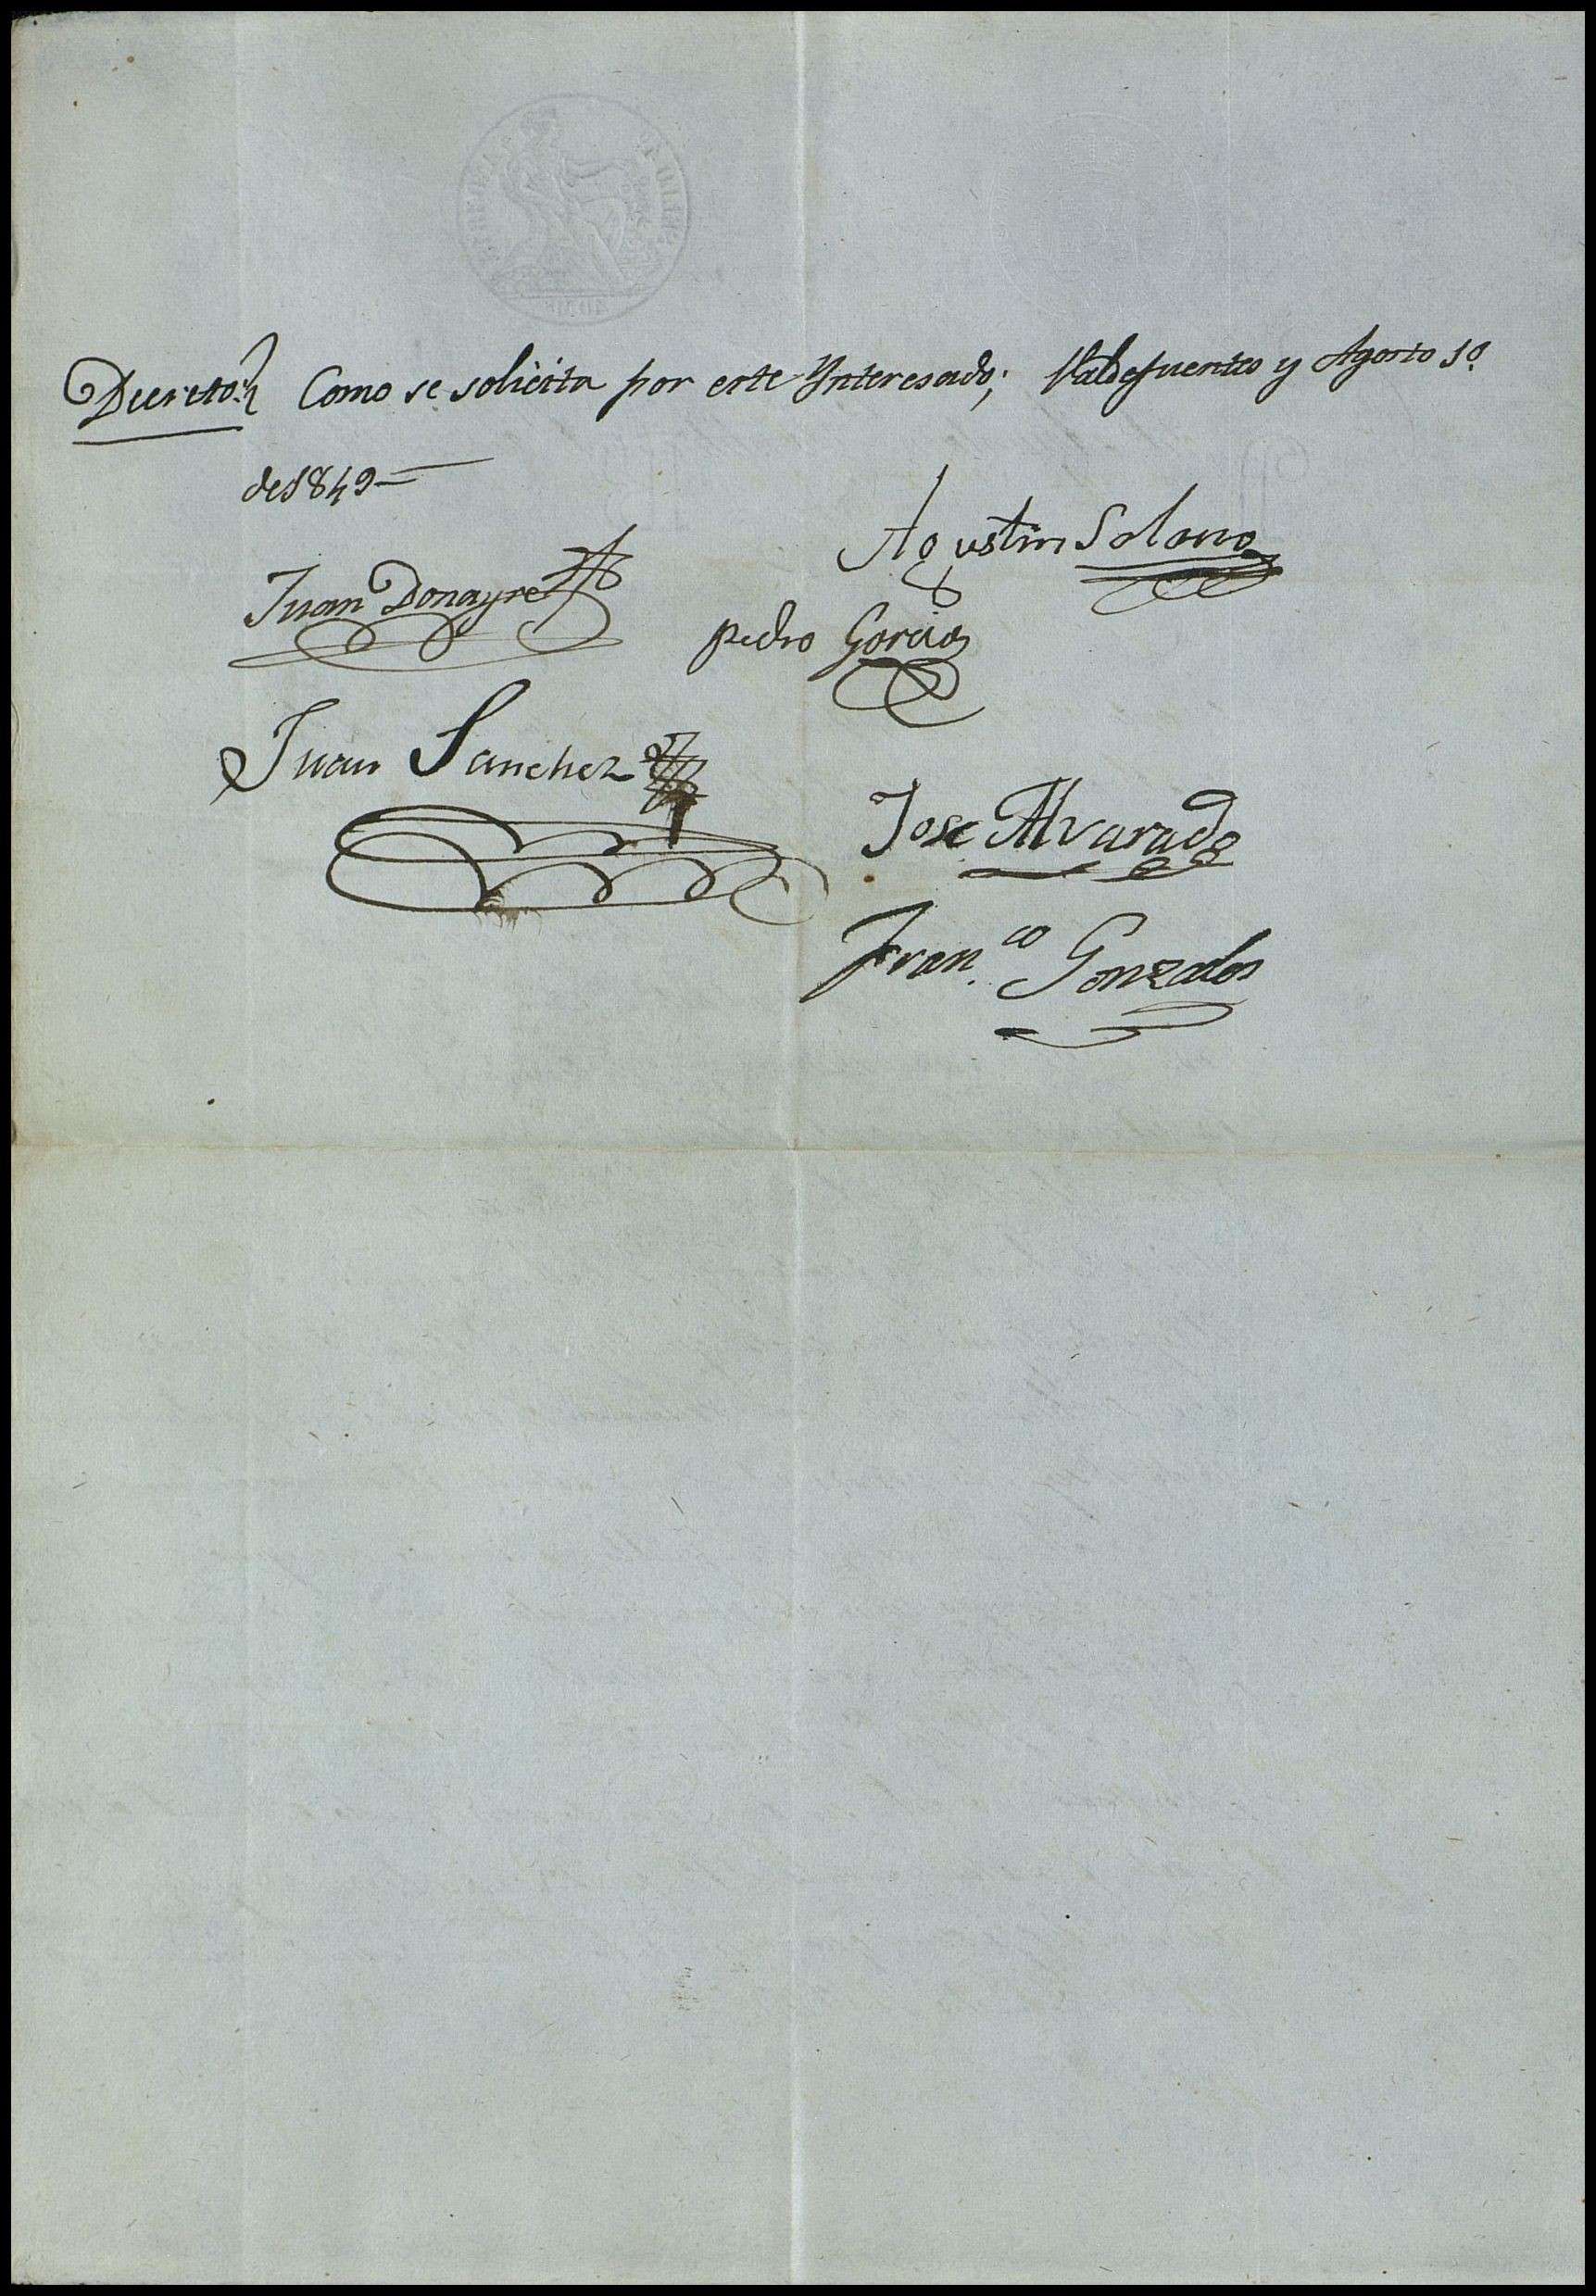 Decreto Como se solicita por este Ynteresado; Valdefuentes y Agosto 1º
de 1849
Agustin Solano
Juan Donayre
pedro Garcia
Juan Sanchez
Jose Alvarado
Fran.co Gonzales